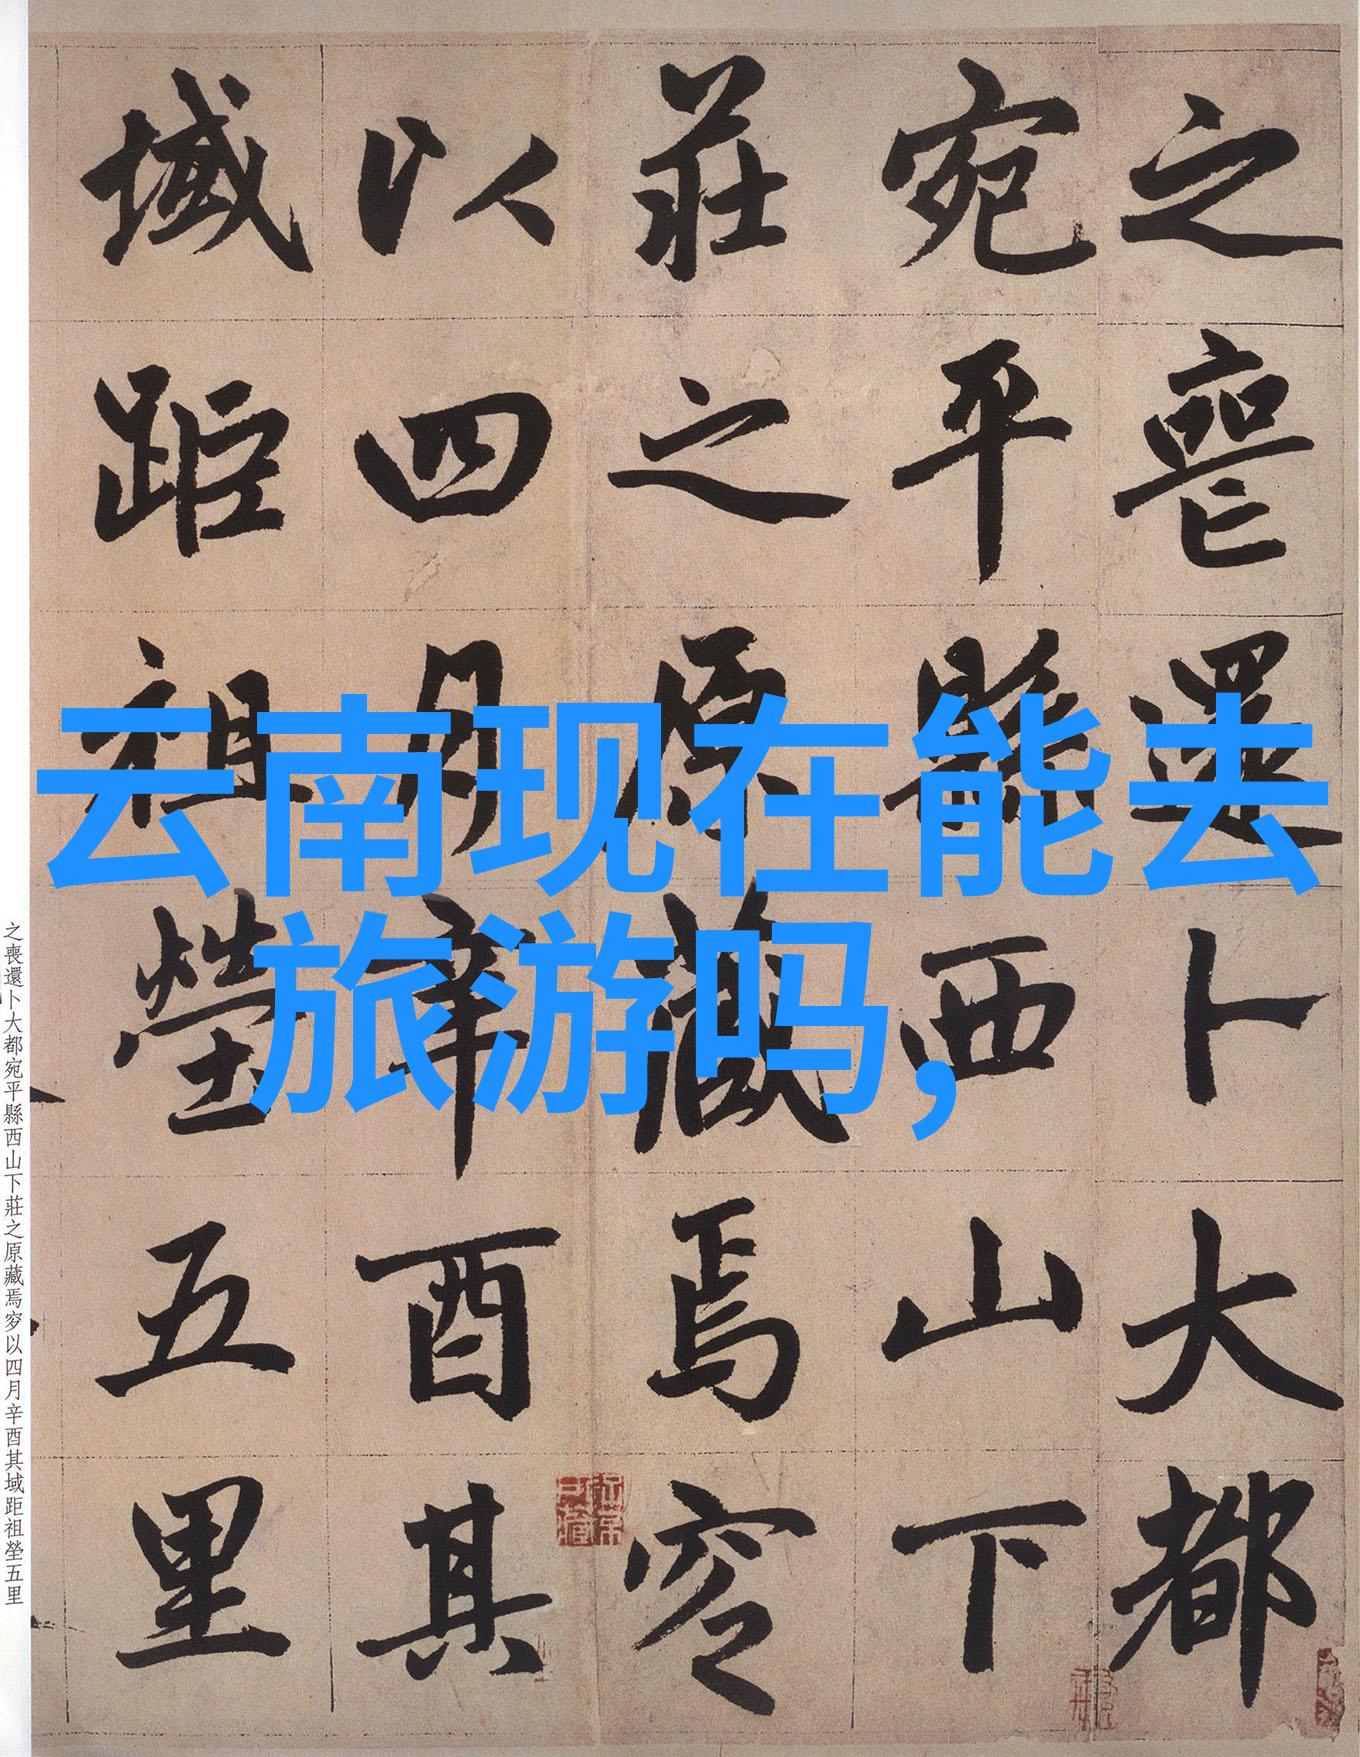 之喪還卜大都
宛平縣西山下
莊之原藏焉穸
以四月辛酉其
域距祖塋五里
云南现在能去
旅游吗，
之喪還卜大都宛平縣西山下莊之原藏焉穸以四月辛酉其域距祖塋五里